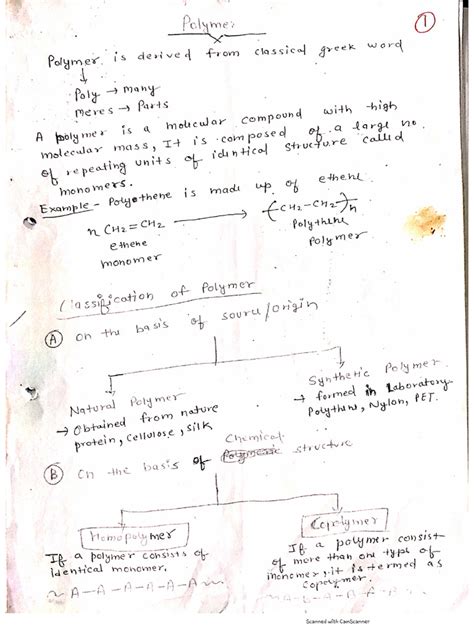 Polymer
1
Polymer is derived from classical greek word
Poly → many
meres → Parts
A polymer is a molecular compound with high
molecular mass, It is composed of a large no.
of repeating units of identical structure called
monomers.
Example - Polyethene is made up of ethene
n CH2=CH2 → (CH2-CH2)n
ethene
monomer
Polythene
Polymer
Classification of Polymer
A on the basis of source/origin
Natural Polymer
→ Obtained from nature
protein, cellulose, silk
Synthetic Polymer
→ formed in Laboratory
Polythene, Nylon, PET.
Chemical
B On the basis of structure
Homopolymer
If a polymer consists of
identical monomer.
~ A-A-A-A-A-A ~
Copolymer
If a polymer consist
of more than one type of
monomer, it is termed as
Copolymer.
Scanned with CamScanner